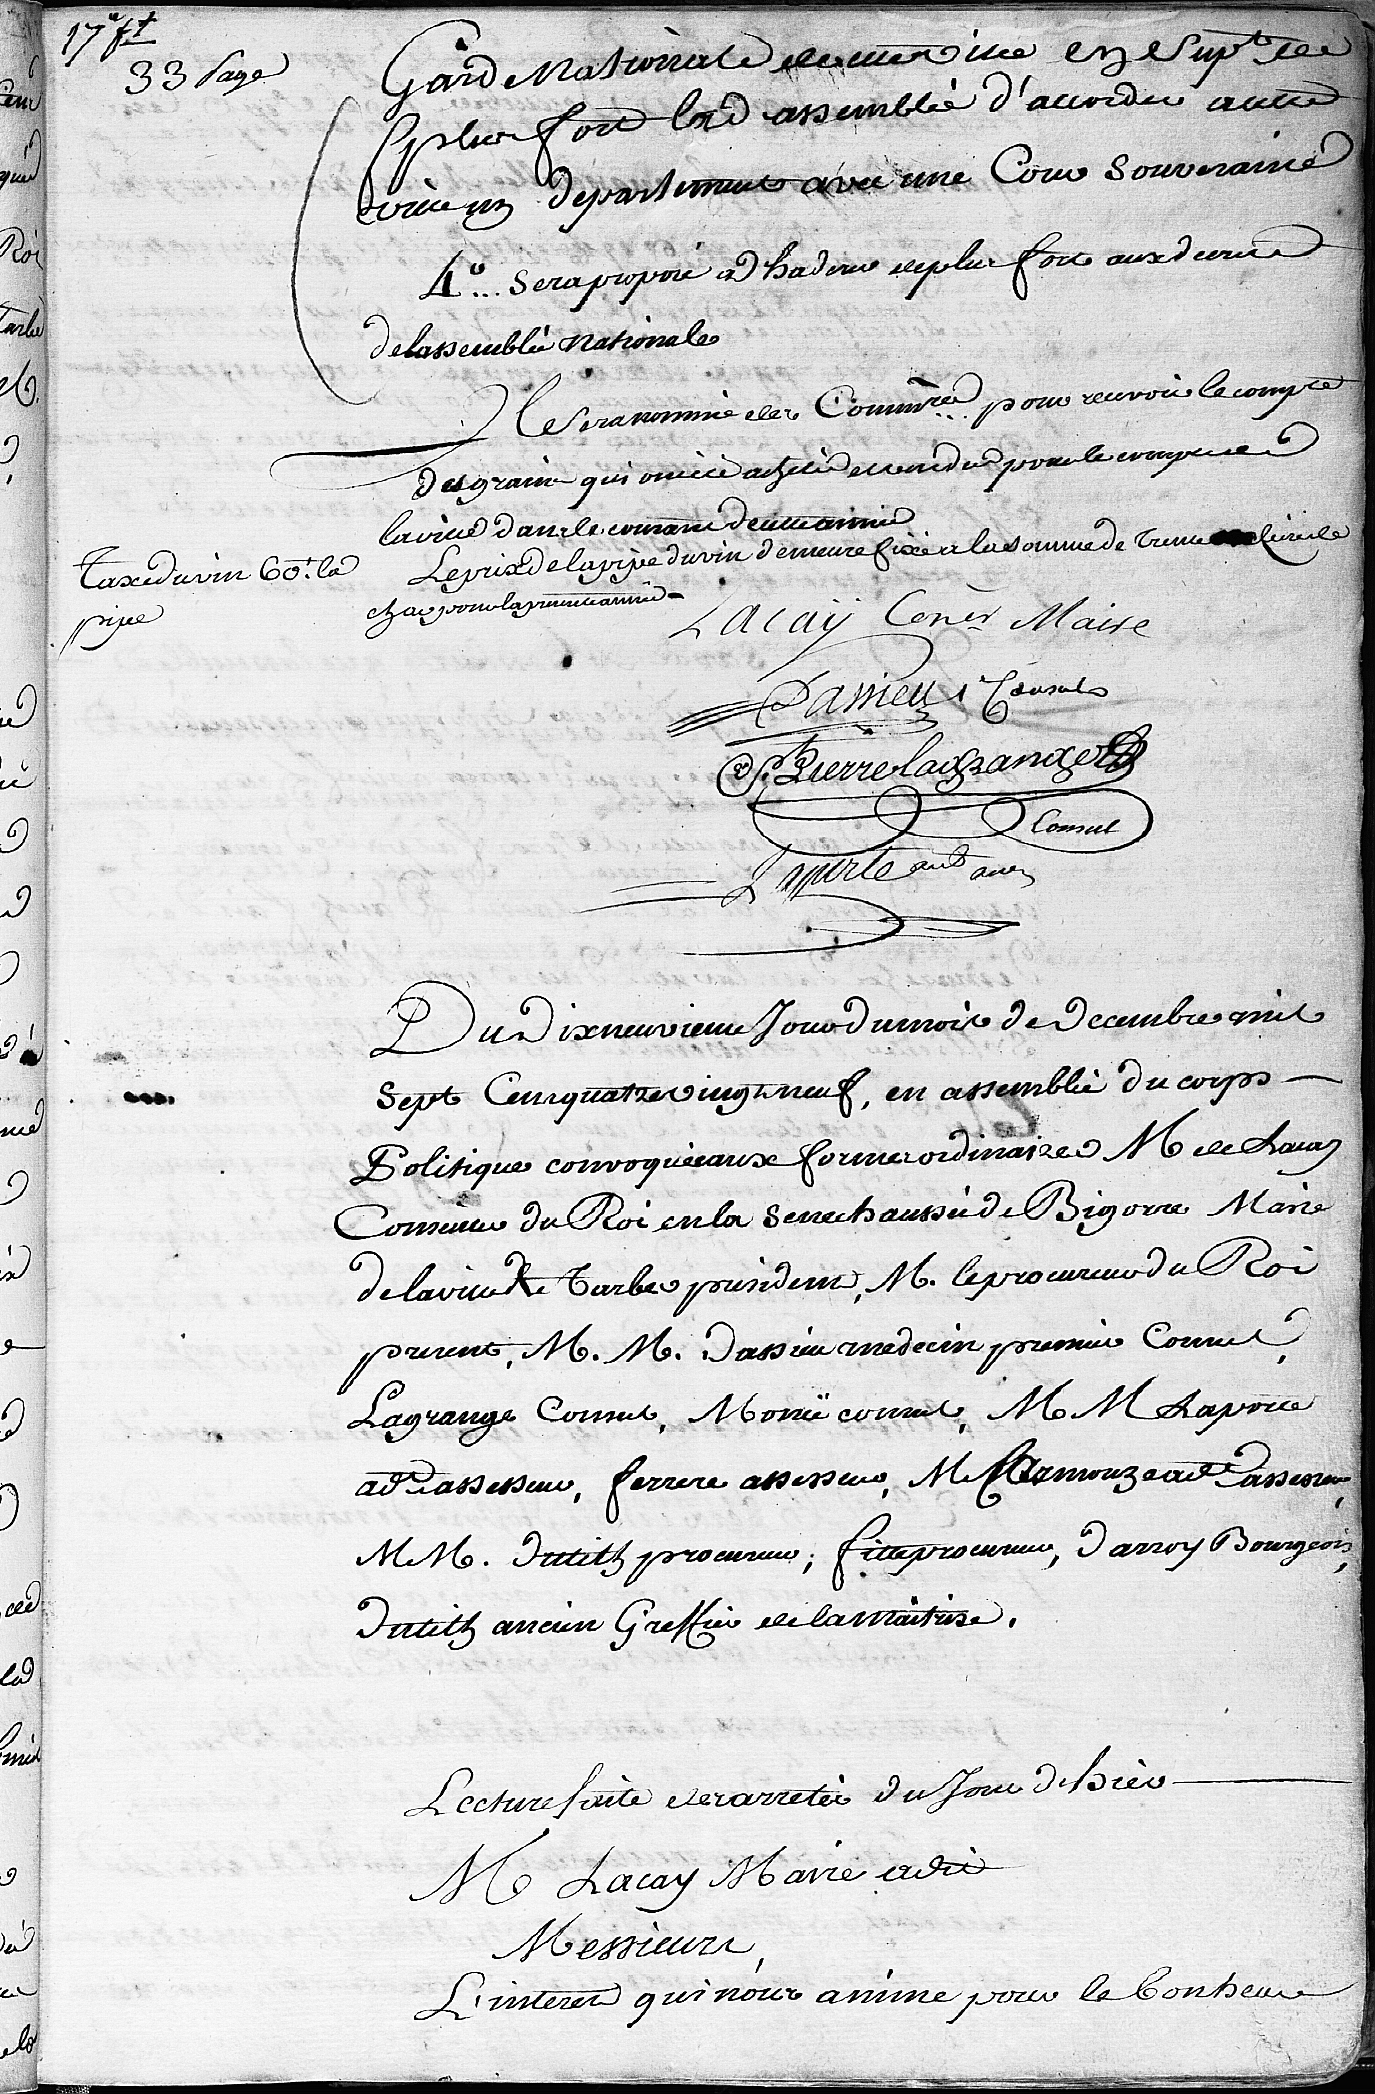 17e ft
33 Page
Garde Nationale de cette ville en Supt les
plus fort lad assemblée d'accorder a cette
ville un departement avec une Cour Souveraine
4o... Sera proposé d'haderer le plus fort aux decrets
de lassemblée Nationale
Il Sera nommé des Commres pour recevoir le compte
des grains qui ont été achetés et vendus pour le compte de
la ville dans le courant de cette année
Taxe du vin 60t. la
pipe
Le prix de la pipe du vin demeure fixé a la somme de trente livres le
char pour la presente année
Lacay Coner Maire
Dassieu 1r Consul
Pierre lagrange
Consul
Laporte ant asser
Du Dix neuvieme Jour du mois de Decembre mil
Sept Cens quatre vingt neuf, en assemblée du corps
Politique convoquée aux formes ordinaires M de Lacay
Conseiller du Roi en la Senechaussée de Bigorre Maire
de la ville de Tarbes president, M. le procureur du Roi
present, M. M. Dassieu medecin premier Consul,
Lagrange Consul, Monié consul, M M Laporte
adt assesseur, ferrere assesseur, M Larmouze adt assesseur,
M M. Dutilh procureur, fitte procureur, Darroy Bourgeois,
Dutilh ancien Greffier de la maitrise.
Lecture faite des arretés du Jour d'hier
M Lacay Maire a dit
Messieurs,
L'interet qui nous anime pour le bonheur